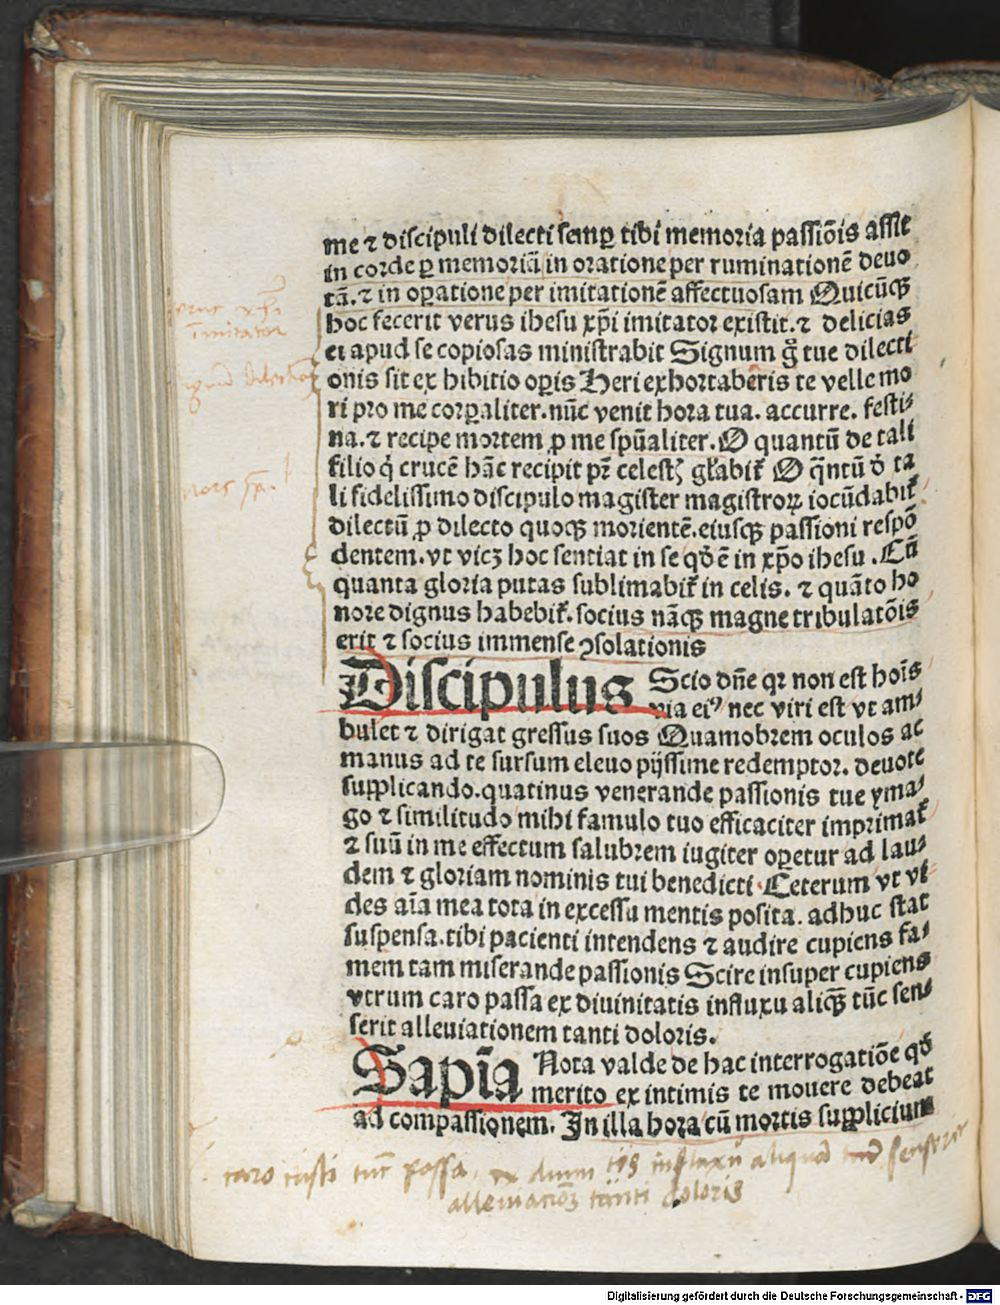 me ⁊ discipuli dilecti semꝑ tibi memoria passiõis assit
in corde ꝑ memoriã in oratione per ruminationẽ deuo
tã. ⁊ in oꝑatione per imitationẽ affectuosam Quicũqꝫ
hoc fecerit verus ihesu xp̃i imitator existit. ⁊ delicias
ei apud se copiosas ministrabit Signum g̃ tue dilecti
onis sit ex hibitio oꝑis Heri exhortaberis te velle mo
ri pro me corꝑaliter. nũc venit hora tua. accurre. festi⸗
na. ⁊ recipe mortem ꝓ me sp̃ualiter. O quantũ de tali
filio q́ crucẽ hãc recipit pr̃ celestꝭ gl̃abit᷑ O q̃ntũ d̕ ta
li fidelissimo discipulo magister magistroꝝ iocũdabit᷑
dilectũ ꝓ dilecto quoqꝫ morientẽ. eiusqꝫ passioni respõ
dentem. vt vicꝫ hoc sentiat in se qd̕ ẽ in xp̃o ihesu. Cũ
quanta gloria putas sublimabit᷑ in celis. ⁊ quãto ho
nore dignus habebit᷑. socius nãqꝫ magne tribulatõis
erit ⁊ socius immense ꝯsolationis
Discipulus Scio dñe qꝛ non est hoĩs
via eiꝰ nec viri est vt am⸗
bulet ⁊ dirigat gressus suos Quamobrem oculos ac
manus ad te sursum eleuo pijssime redemptor. deuote
supplicando. quatinus venerande passionis tue yma⸗
go ⁊ similitudo mihi famulo tuo efficaciter imprimat᷑
⁊ suũ in me effectum salubrem iugiter oꝑetur ad lau⸗
dem ⁊ gloriam nominis tui benedicti. Ceterum vt vi
des aĩa mea tota in excessu mentis posita. adhuc stat
suspensa. tibi pacienti intendens ⁊ audire cupiens fa⸗
mem tam miserande passionis Scire insuper cupiens
vtrum caro passa ex diuinitatis influxu aliqꝫ tũc sen⸗
serit alleuiationem tanti doloris.
Sapĩa Nota valde de hac interrogatiõe qd̕
merito ex intimis te mouere debeat
ad compassionem. In illa hora cũ mortis supplicium
imitator
caro passa influxu aliquod
tanti doloris
Digitalisierung gefördert durch die Deutsche Forschungsgemeinschaft - DFG